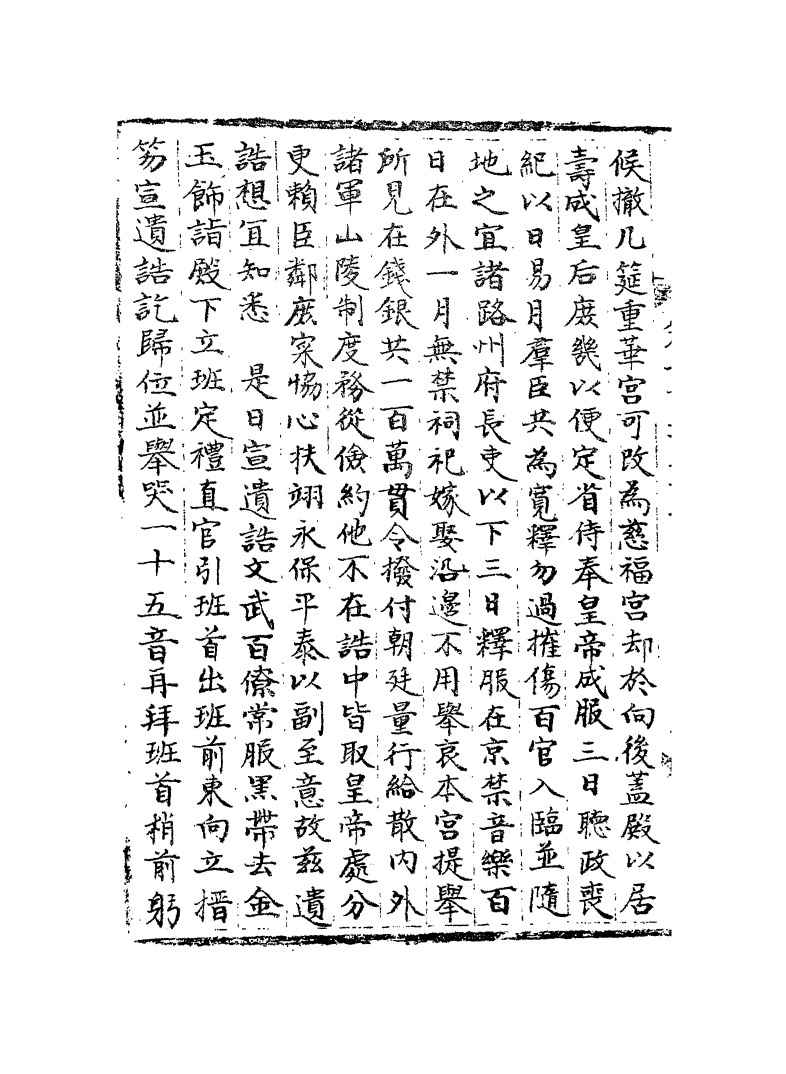 候撤几筵重華宮可改為慈福宮却於向後蓋殿以居
壽成皇后庶幾以便定省侍奉皇帝成服三日聽政喪
紀以日易月羣臣共為寬釋勿過摧傷百官入臨並隨
地之宜諸路州府長吏以下三日釋服在京禁音樂百
日在外一月無禁祠祀嫁娶沿邊不用舉哀本宮提舉
所見在錢銀共一百萬貫令撥付朝廷量行給散內外
諸軍山陵制度務從儉約他不在誥中皆取皇帝處分
更賴臣鄰庶寀恊心扶翊永保平泰以副至意故茲遺
誥想宜知悉　是日宣遺誥文武百僚常服黑帶去金
玉飾詣殿下立班定禮直官引班首出班前東向立搢
笏宣遺誥訖歸位並舉哭一十五音再拜班首稍前躬